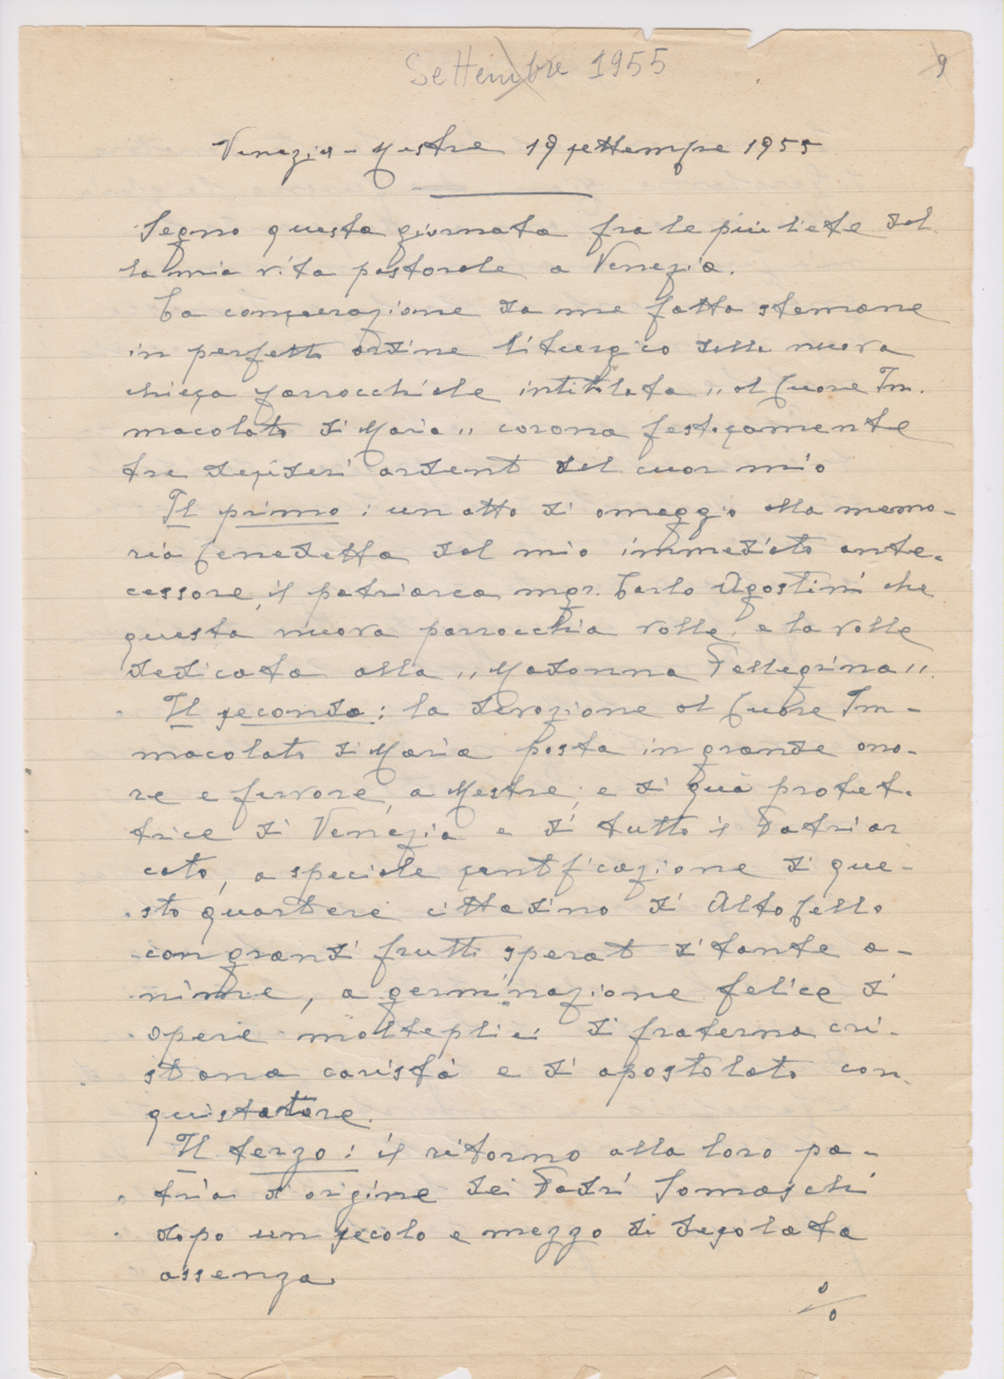 Settembre 1955
9
Venezia - Mestre 19 settembre 1955
Segno questa giornata fra le più liete del
la mia vita pastorale a Venezia.
La consacrazione da me fatta stamane
in perfetto ordine liturgico della nuova
chiesa parrocchiale intitolata "al Cuore Im.
macolato di Maria" corona festosamente
tre desideri ardenti del cuor mio
Il primo: un atto di omaggio alla memo-
ria benedetta del mio immediato ante-
cessore, il patriarca mgr. Carlo Agostini che
questa nuova parrocchia volle, e la volle
dedicata alla "Madonna Pellegrina".
Il secondo: la devozione al Cuore Im-
macolato di Maria posta in grande ono-
re e fervore, a Mestre; e di qua protet-
trice di Venezia e di tutto il Patriar
cato, a speciale santificazione di que-
sto quartiere cittadino di Altobello
con grandi frutti sperati di tante a-
nime, a germinazione felice di
opere molteplici di fraterna cri-
stiana carità e di apostolato con-
quistatore.
Il terzo: il ritorno alla loro pa-
tria d'origine dei Padri Somaschi
dopo un secolo e mezzo di desolata
assenza
%